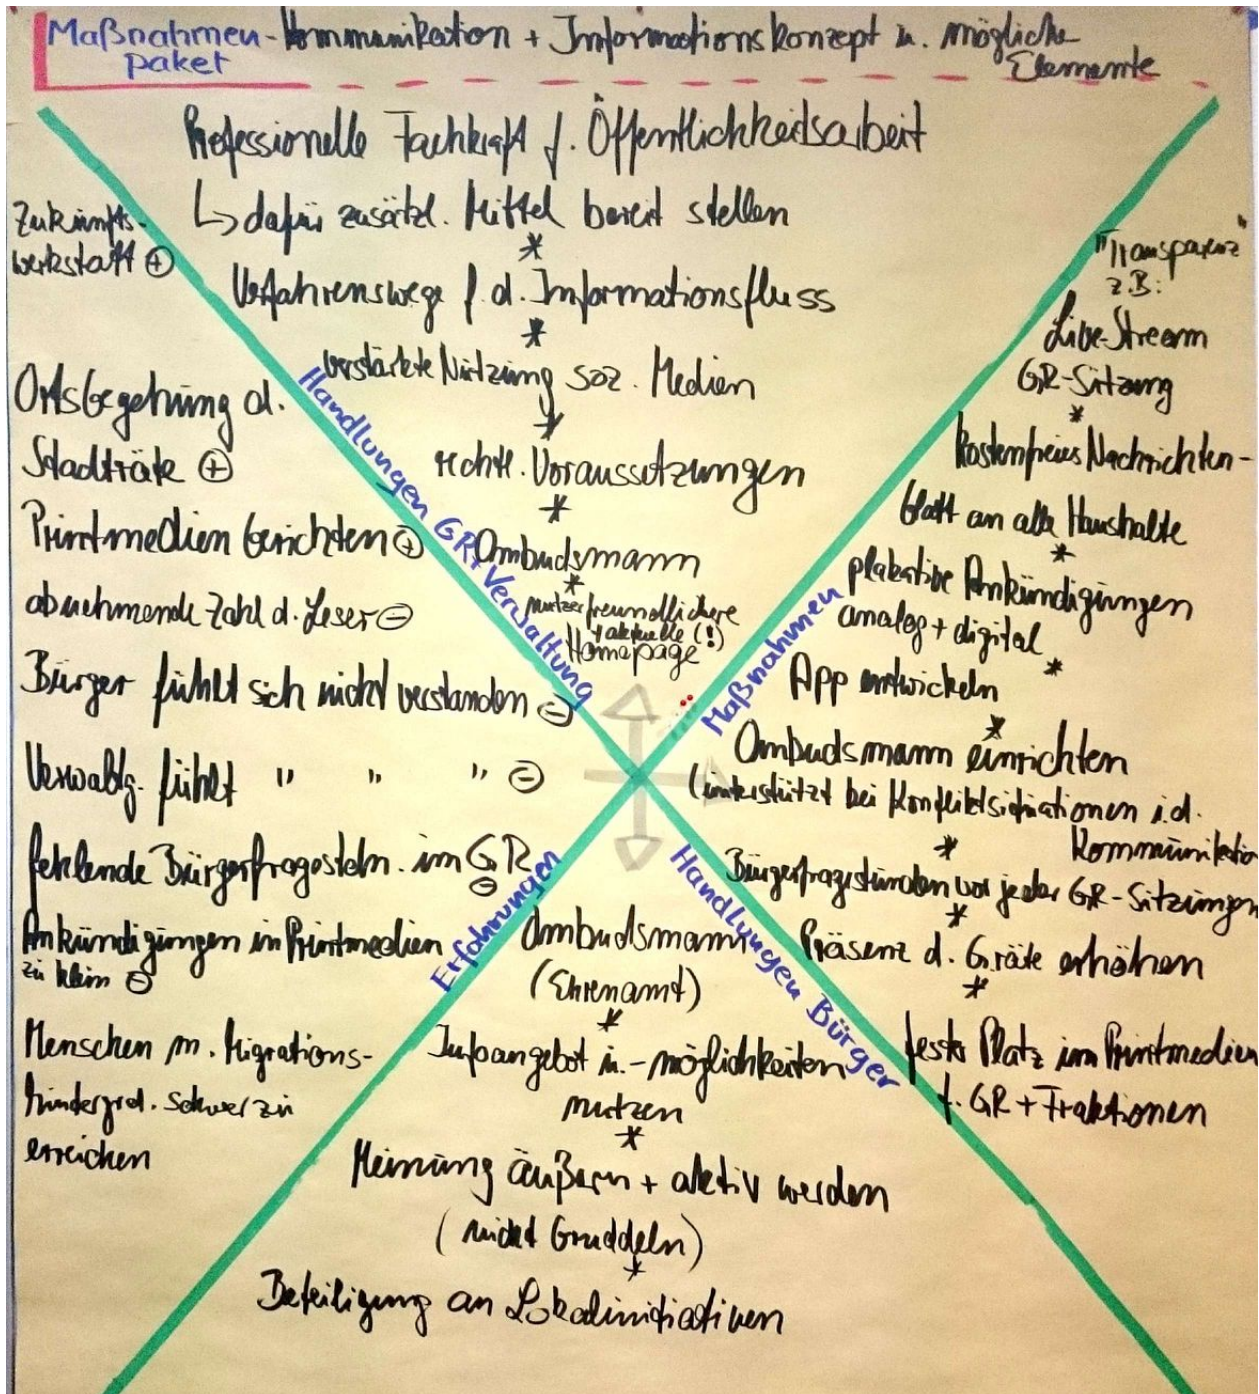 Maßnahmen- Kommunikation + Informationskonzept u. mögliche
paket
Elemente
Professionelle Fachkraft f. Öffentlichkeitsarbeit
↳ dafür zusätzl. Mittel bereit stellen
*
Verfahrenswege f. d. Informationsfluss
*
verstärkte Nutzung soz. Medien
*
rechtl. Voraussetzungen
*
Ombudsmann
*
nutzerfreundlichere
+ aktuelle (!)
Homepage
Handlungen GR+Verwaltung
Zukunfts-
werkstatt ⊕
Ortsbegehung d.
Stadträte ⊕
Printmedien berichten ⊕
abnehmende Zahl d. Leser ⊖
Bürger fühlt sich nicht verstanden ⊖
Verwaltg. fühlt " " " ⊖
fehlende Bürgerfragestdn. im GR
⊖
Ankündigungen in Printmedien
zu klein ⊖
Menschen m. Migrations-
hindergrd. schwer zu
erreichen
Erfahrungen
"Transparenz"
z.B:
Live-Stream
GR-Sitzung
*
kostenfreies Nachrichten-
blatt an alle Haushalte
*
plakative Ankündigungen
analog + digital
*
App entwickeln
*
Ombudsmann einrichten
(unterstützt bei Konfliktsituationen i.d.
Kommunikation
*
Bürgerfragestunden vor jeder GR-Sitzungen
*
Präsenz d. G.räte erhöhen
*
fester Platz in Printmedien
f. GR + Fraktionen
Maßnahmen
Ombudsmann
(Ehrenamt)
*
Infoangebot u. -möglichkeiten
nutzen
*
Meinung äußern + aktiv werden
(nicht Gruddeln)
*
Beteiligung an Lokalinitiativen
Handlungen Bürger